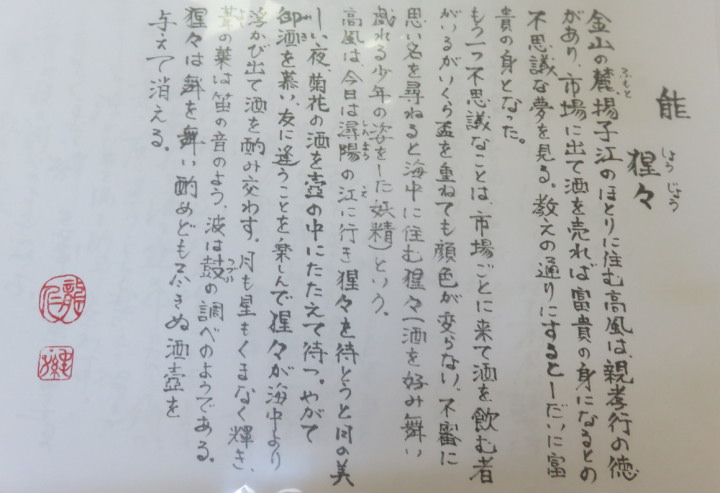 能
猩々
しょうじょう
金山の麓、揚子江のほとりに住む高風は、親孝行の徳
ふもと
があり、市場に出て酒を売れば富貴の身になるとの
不思議な夢を見る。教えの通りにするとしだいに富
貴の身となった。
もう一つ不思議なことは、市場ごとに来て酒を飲む者
がいるがいくら盃を重ねても顔色が変らない。不審に
思い名を尋ねると海中に住む猩々(酒を好み舞い
戯れる少年の姿をした妖精)という。
高風は、今日は潯陽の江に行き猩々を待とうと月の美
しんよう
え
しい夜、菊花の酒を壺の中にたたえて待つ。やがて
御酒を慕い、友に逢うことを楽しんで猩々が海中より
浮かび出て酒を酌み交わす。月も星もくまなく輝き、
葦の葉は笛の音のよう、波は鼓の調べのようである。
つづみ
猩々は舞を舞い酌めども尽きぬ酒壺を
与えて消える。